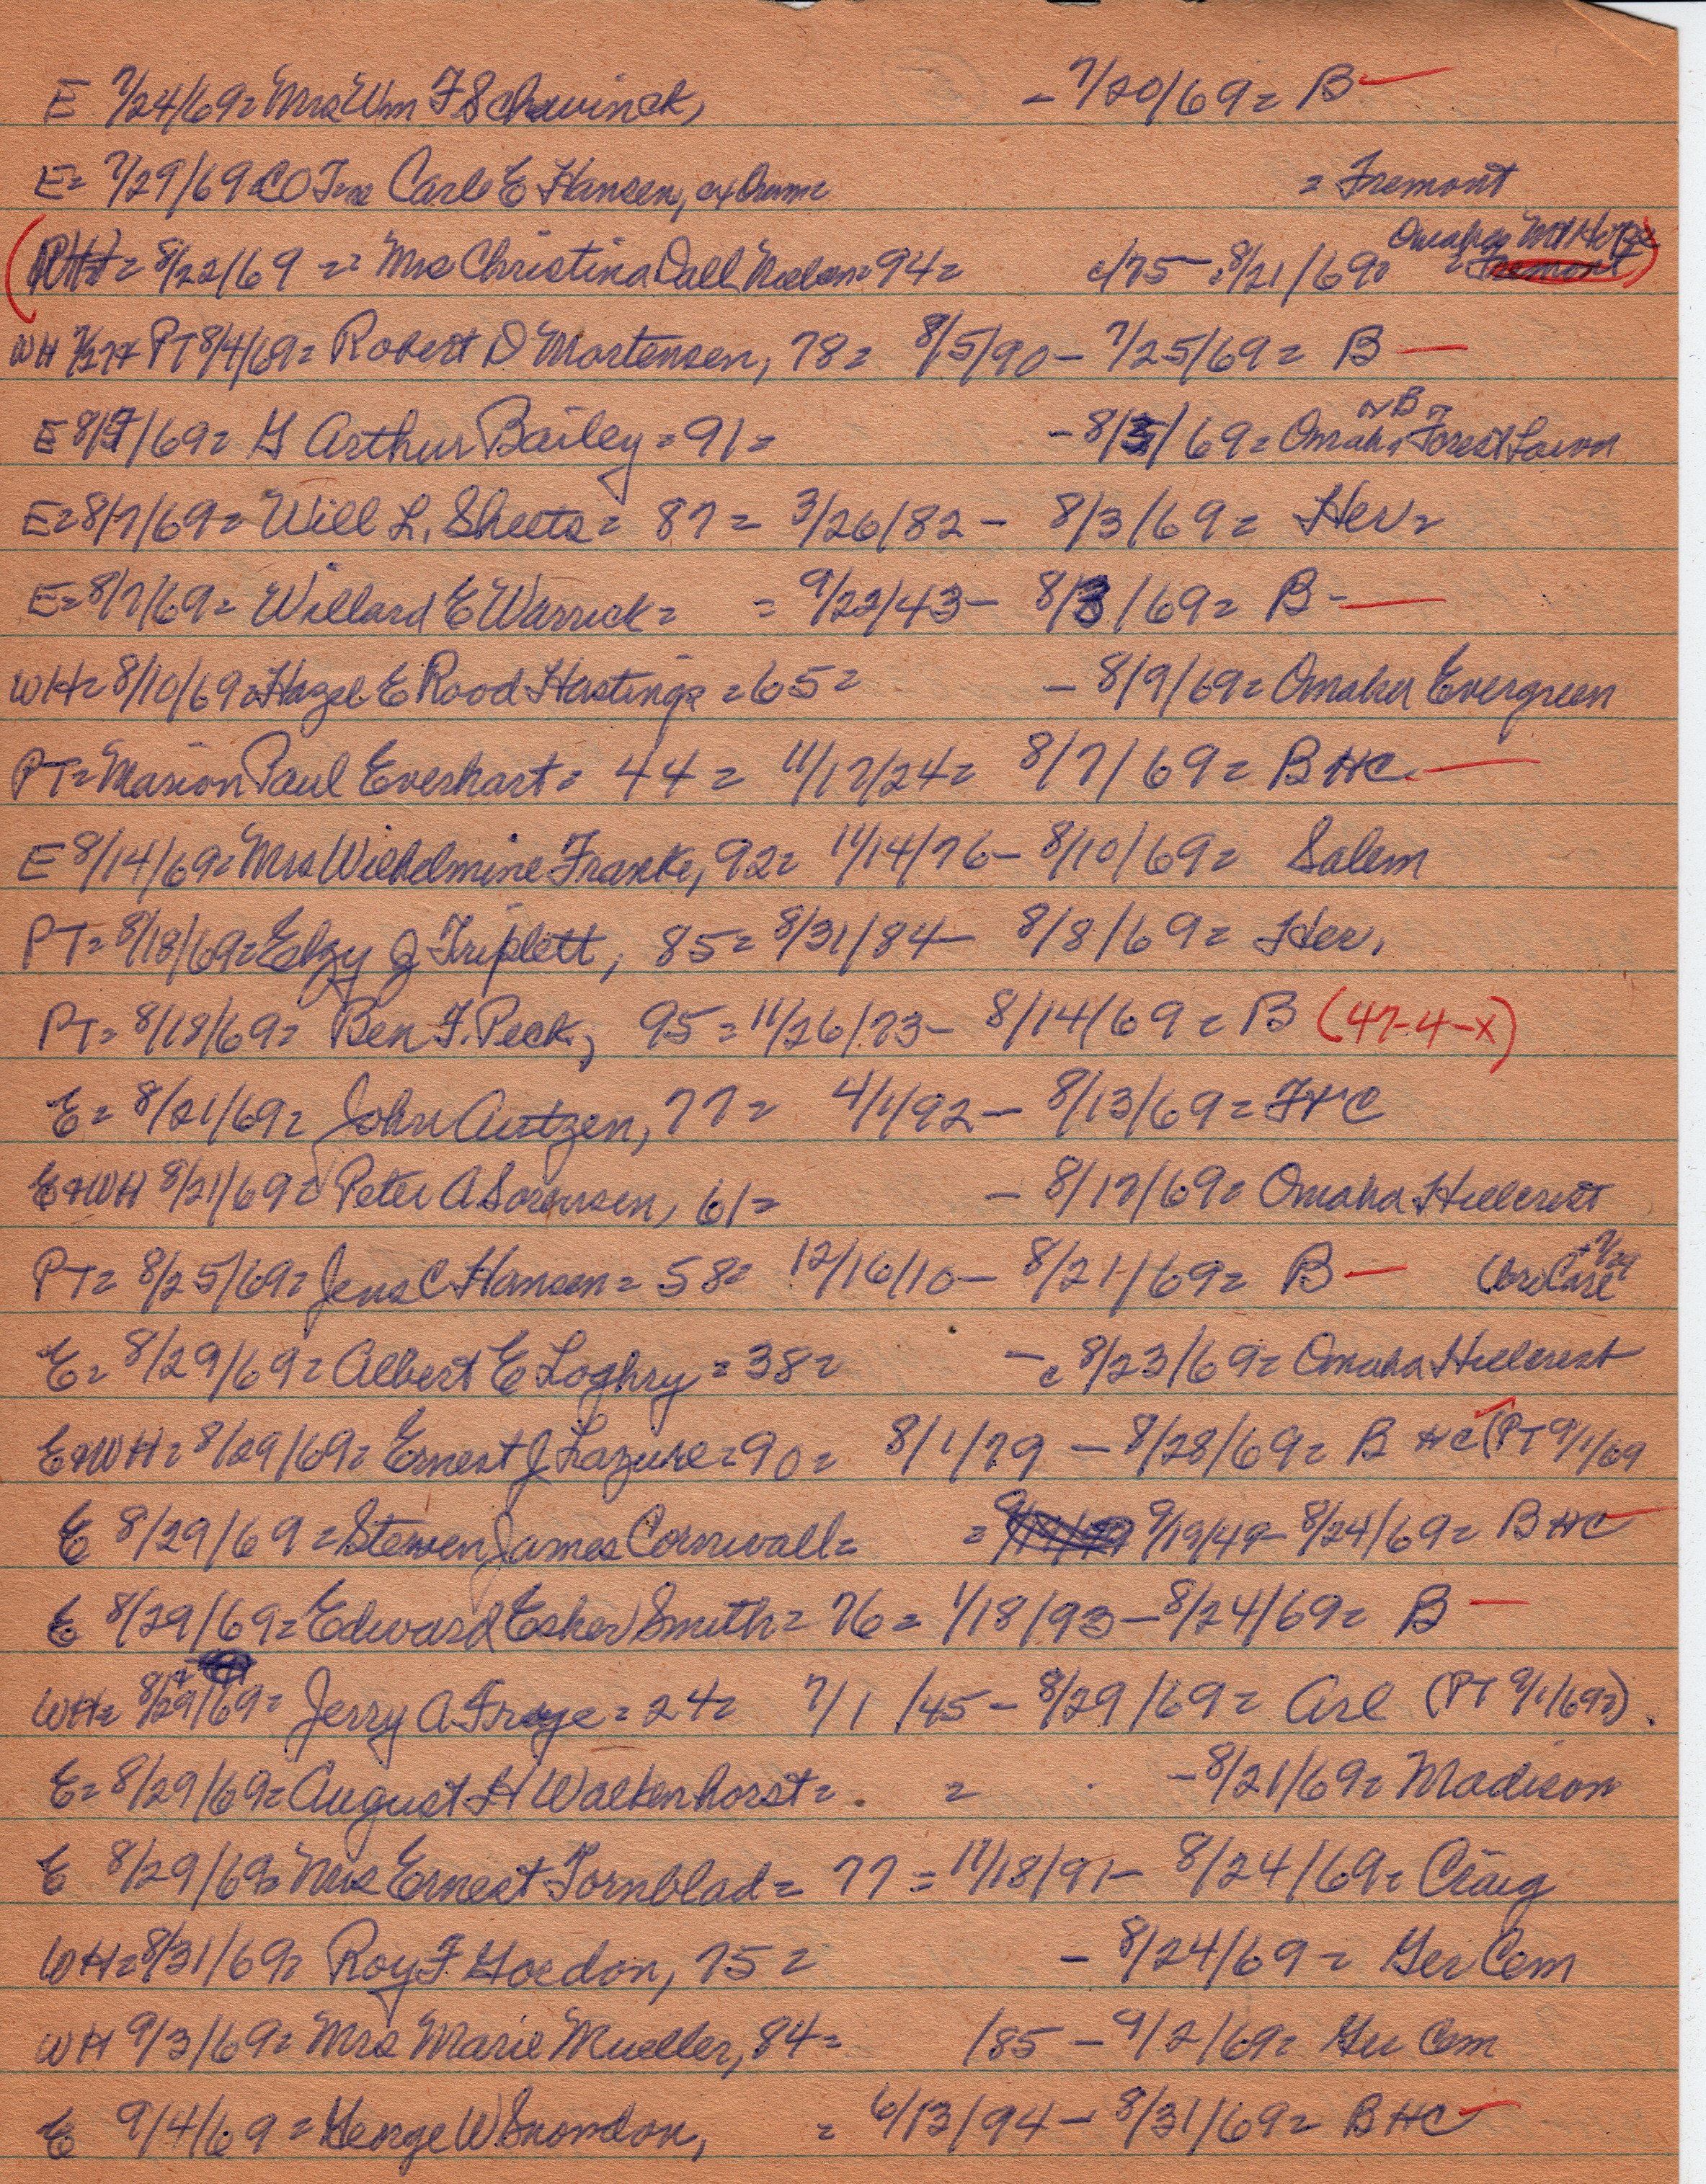 E 7/24/69= Mrs Wm F Schwinck, - 7/20/69= B —
E= 7/29/69 Carl E Hansen, = Fremont
8/22/69 = Mrs Christina Dall Nielsen= 94= c/75 - 8/21/69= Omaha Mt Hope Fremont
WH 7/27+ PT 8/4/69= Robert D Mortensen, 78= 8/5/90 - 7/25/69= B —
E 8/7/69= G Arthur Bailey = 91= - 8/3/69= Omaha or B = Forest Lawn
E= 8/7/69= Will L. Sheets= 87= 3/26/82 - 8/3/69= Her=
E= 8/7/69= Willard E Warrick= = 9/22/43 - 8/3/69= B - —
WH= 8/10/69= Hazel E Rood Hastings =65= - 8/9/69= Omaha Evergreen
PT= Marion Paul Everhart= 44= 11/17/24= 8/7/69= B HC —
E 8/14/69= Mrs Wilhelmine Franke, 92= 11/14/76 - 8/10/69= Salem
PT= 8/18/69= Elzy J Triplett, 85= 8/31/84 - 8/8/69= Her.
PT= 8/18/69= Ben F. Peck, 95= 11/26/73 - 8/14/69= B (47-4-X)
E= 8/21/69= John Autzen, 77= 4/1/92 - 8/13/69= F+C
E+WH 8/21/69= Peter A Sorensen, 61= - 8/17/69= Omaha Hillcrest
PT= 8/25/69= Jens C Hansen= 58= 12/16/10 - 8/21/69= B —
E= 8/29/69= Albert E Loghry = 38= - c 8/23/69= Omaha Hillcrest
E+WH= 8/29/69= Ernest J Lazure= 90= 8/1/79 - 8/28/69= B HC (PT 9/1/69
E 8/29/69 = Steven James Cornwall= = 9/19/49 - 8/24/69= B HC
E 8/29/69= Edward Esker Smith= 76= 1/18/93 - 8/24/69= B —
WH= 8/29/69= Jerry A Fraye = 24= 7/1/45 - 8/29/69= Arl (PT 9/1/69=)
E= 8/29/69= August H Walkenhorst= = - 8/21/69= Madison
E 8/29/69= Mrs Ernest Tornblad= 77= 11/18/91 - 8/24/69= Craig
WH= 8/31/69= Roy F Gordon, 75= - 8/24/69= Ger Cem
WH 9/3/69= Mrs Marie Mueller, 84= /85 - 9/2/69= Ger Cem
E 9/4/69 = George W Snowdon, = 6/13/94 - 8/31/69= B HC